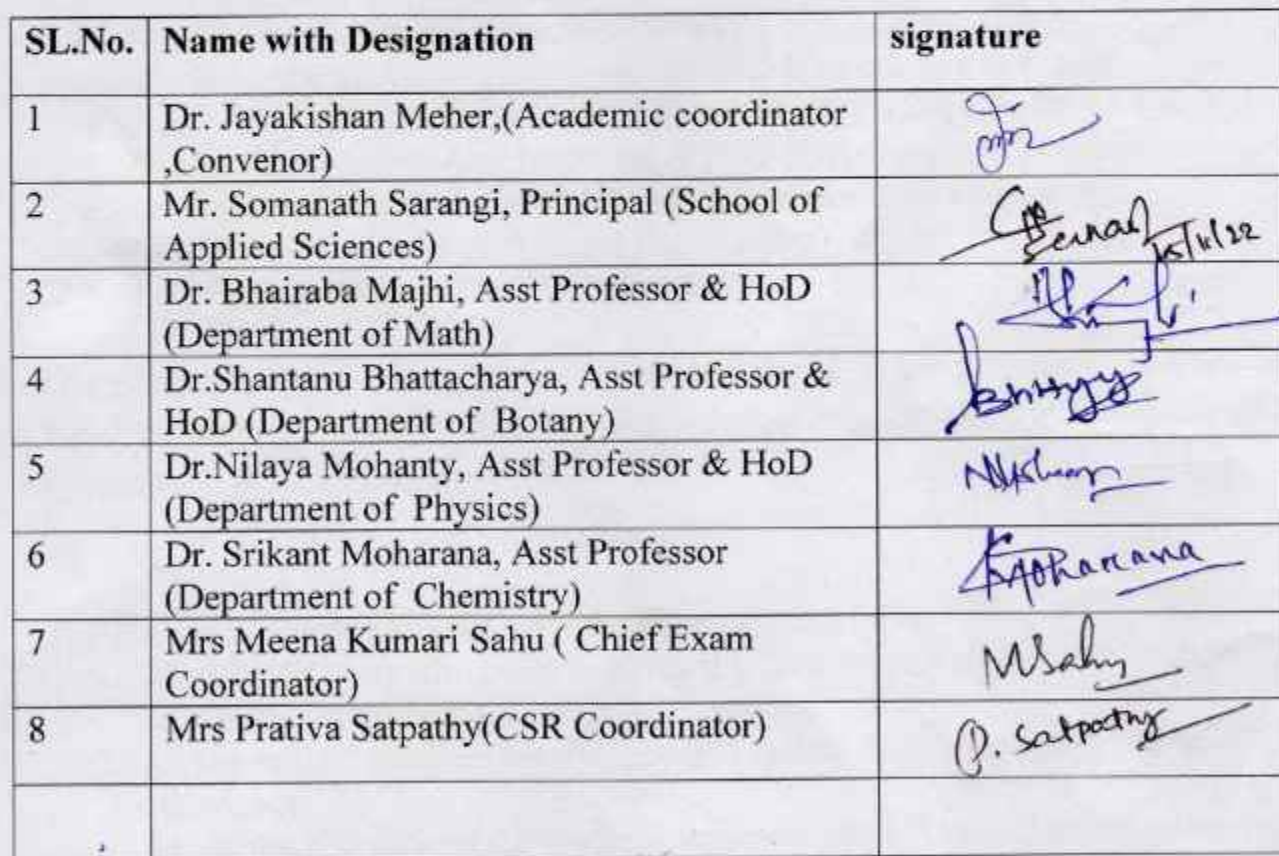 SL.No. Name with Designation signature
1 Dr. Jayakishan Meher,(Academic coordinator
,Convenor)
2 Mr. Somanath Sarangi, Principal (School of
Applied Sciences)
15/11/22
3 Dr. Bhairaba Majhi, Asst Professor & HoD
(Department of Math)
4 Dr.Shantanu Bhattacharya, Asst Professor &
HoD (Department of Botany)
5 Dr.Nilaya Mohanty, Asst Professor & HoD
(Department of Physics)
6 Dr. Srikant Moharana, Asst Professor Moharana
(Department of Chemistry)
7 Mrs Meena Kumari Sahu ( Chief Exam MSahu
Coordinator)
8 Mrs Prativa Satpathy(CSR Coordinator) P. Satpathy